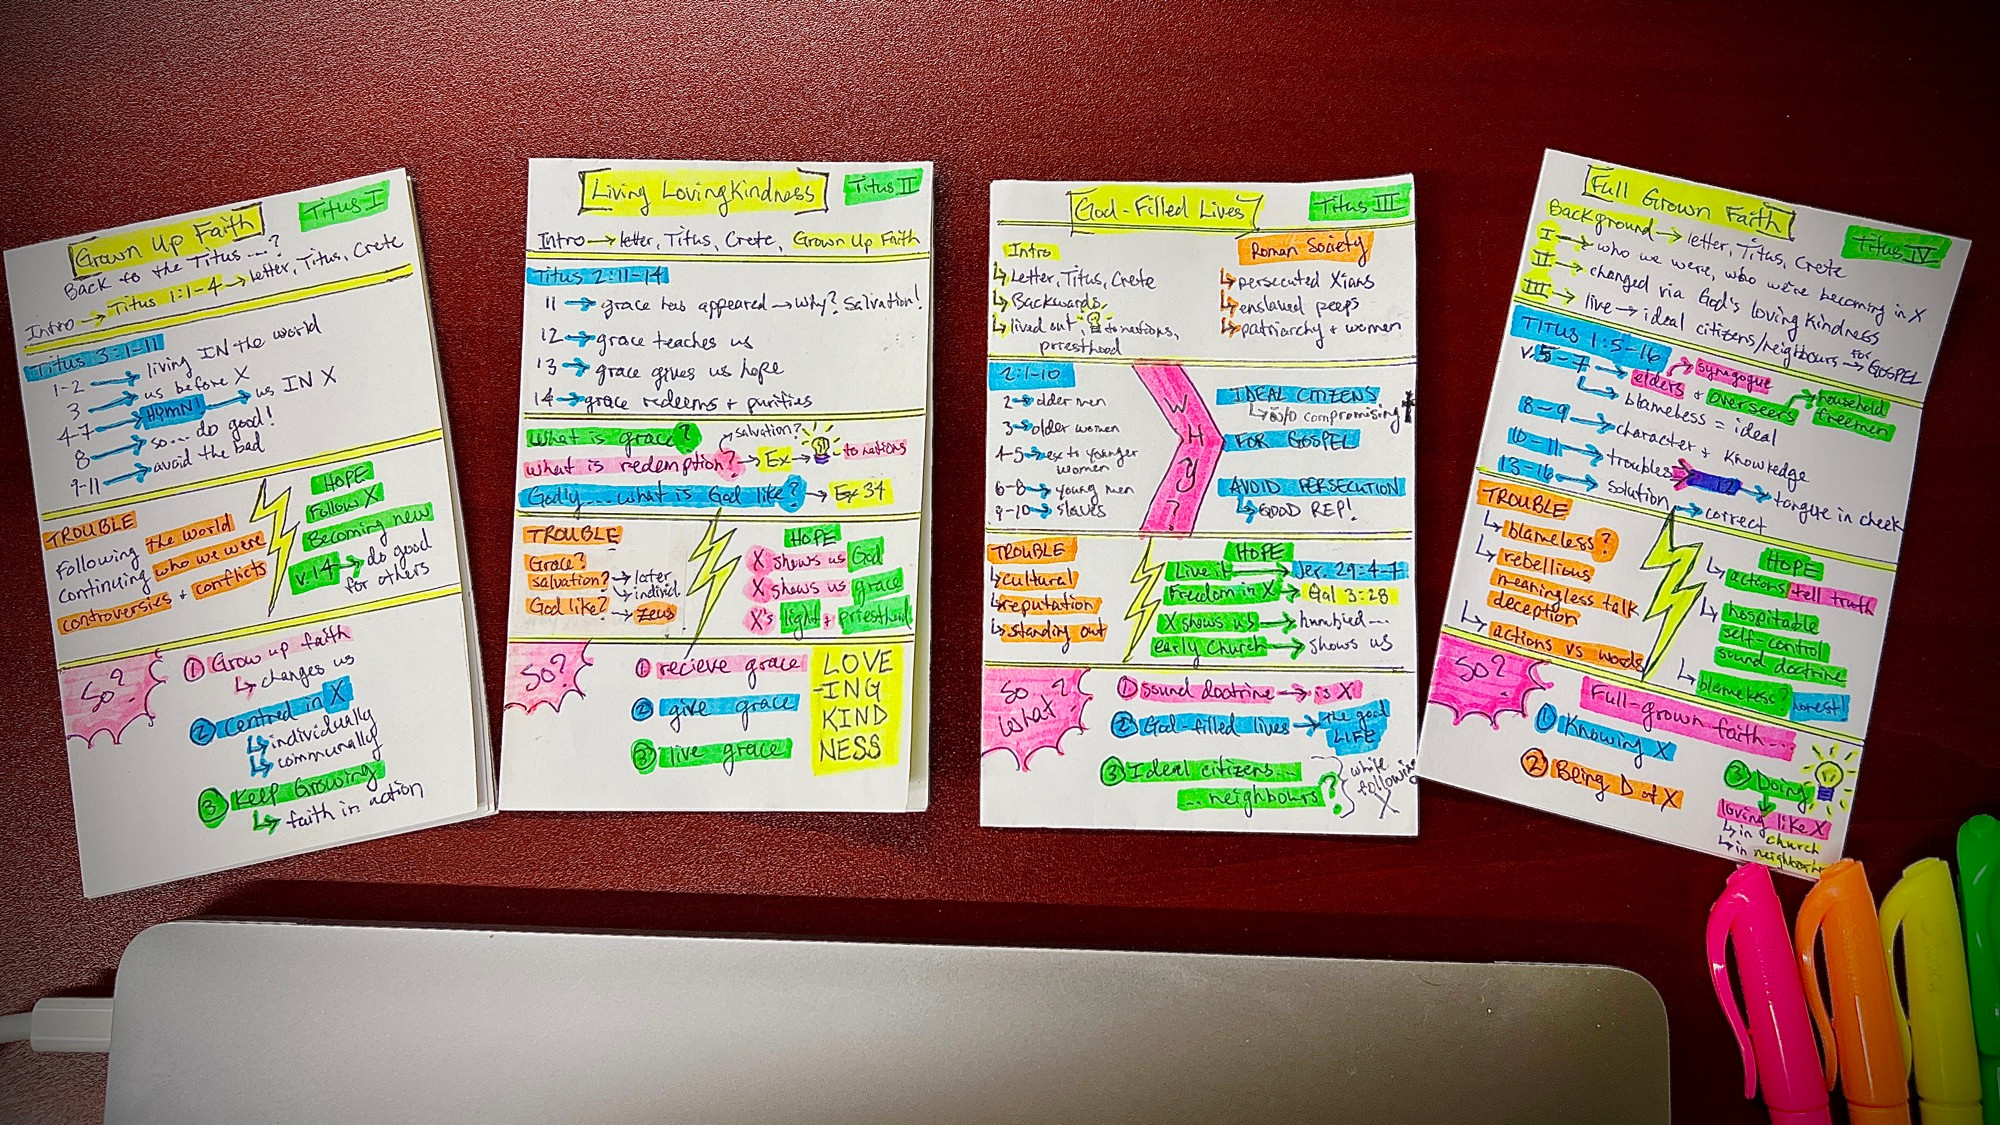 Grown Up Faith
Titus I
Back to the Titus....?
Intro → Titus 1:1-4 → letter, Titus, Crete
Titus 3:1-11
1-2 → living IN the world
3 → us before X
4-7 → HYMN! → us IN X
8 → so... do good!
9-11 → avoid the bad
TROUBLE
Following the world
continuing who we were
controversies + conflicts
HOPE
Follow X
Becoming new
v.14 → do good
for others
So?
① Grow up faith
↳ changes us
② Centred in X
↳ individually
↳ communally
③ Keep Growing
↳ faith in action
Living LovingKindness
Titus II
Intro → letter, Titus, Crete, Grown Up Faith
Titus 2:11-14
11 → grace has appeared → why? Salvation!
12 → grace teaches us
13 → grace gives us hope
14 → grace redeems + purifies
What is grace?
salvation?
what is redemption? → Ex → to nations
Godly.... what is God like? → Ex 34
TROUBLE
Grace?
salvation? → later
→ individ.
God like? → Zeus
HOPE
X shows us God
X shows us grace
X's light + priesthood
So?
① recieve grace
② give grace
③ live grace
LOVE
-ING
KIND
NESS
God-Filled Lives
Titus III
Intro
↳ Letter, Titus, Crete
↳ Backwards
↳ lived out, to nations,
priesthood
Roman Society
↳ persecuted Xians
↳ enslaved peeps
↳ patriarchy + women
2:1-10
2 → older men
3 → older women
4-5 → ex to younger
women
6-8 → young men
9-10 → slaves
WHY?
IDEAL CITIZENS
↳ w/o compromising
FOR GOSPEL
AVOID PERSECUTION
↳ GOOD REP!
TROUBLE
↳ cultural
↳ reputation
↳ standing out
HOPE
Live it → Jer. 29:4-7
Freedom in X → Gal 3:28
X shows us → humbled...
early church → shows us
So
What?
① sound doctrine → is X
② God-filled lives → the good
LIFE
③ Ideal citizens...
... neighbours?
while
following
X
Full Grown Faith
Titus IV
Background → letter, Titus, Crete
I → who we were, who we're becoming in X
II → changed via God's loving Kindness
III → live → ideal citizens/neighbours → for GOSPEL
TITUS 1:5-16
v.5-7 → elders + overseers
synagogue
household
freemen
↳ blameless = ideal
8-9 → character + Knowledge
10-11 → troubles
12 → tongue in cheek
13-16 → solution → correct
TROUBLE
↳ blameless?
↳ rebellious
meaningless talk
deception
↳ actions vs words
HOPE
↳ actions tell truth
↳ hospitable
self-control
sound doctrine
↳ blameless? honest!
So?
Full-grown faith...
① Knowing X
② Being D of X
③ Doing
loving like X
↳ in church
↳ in